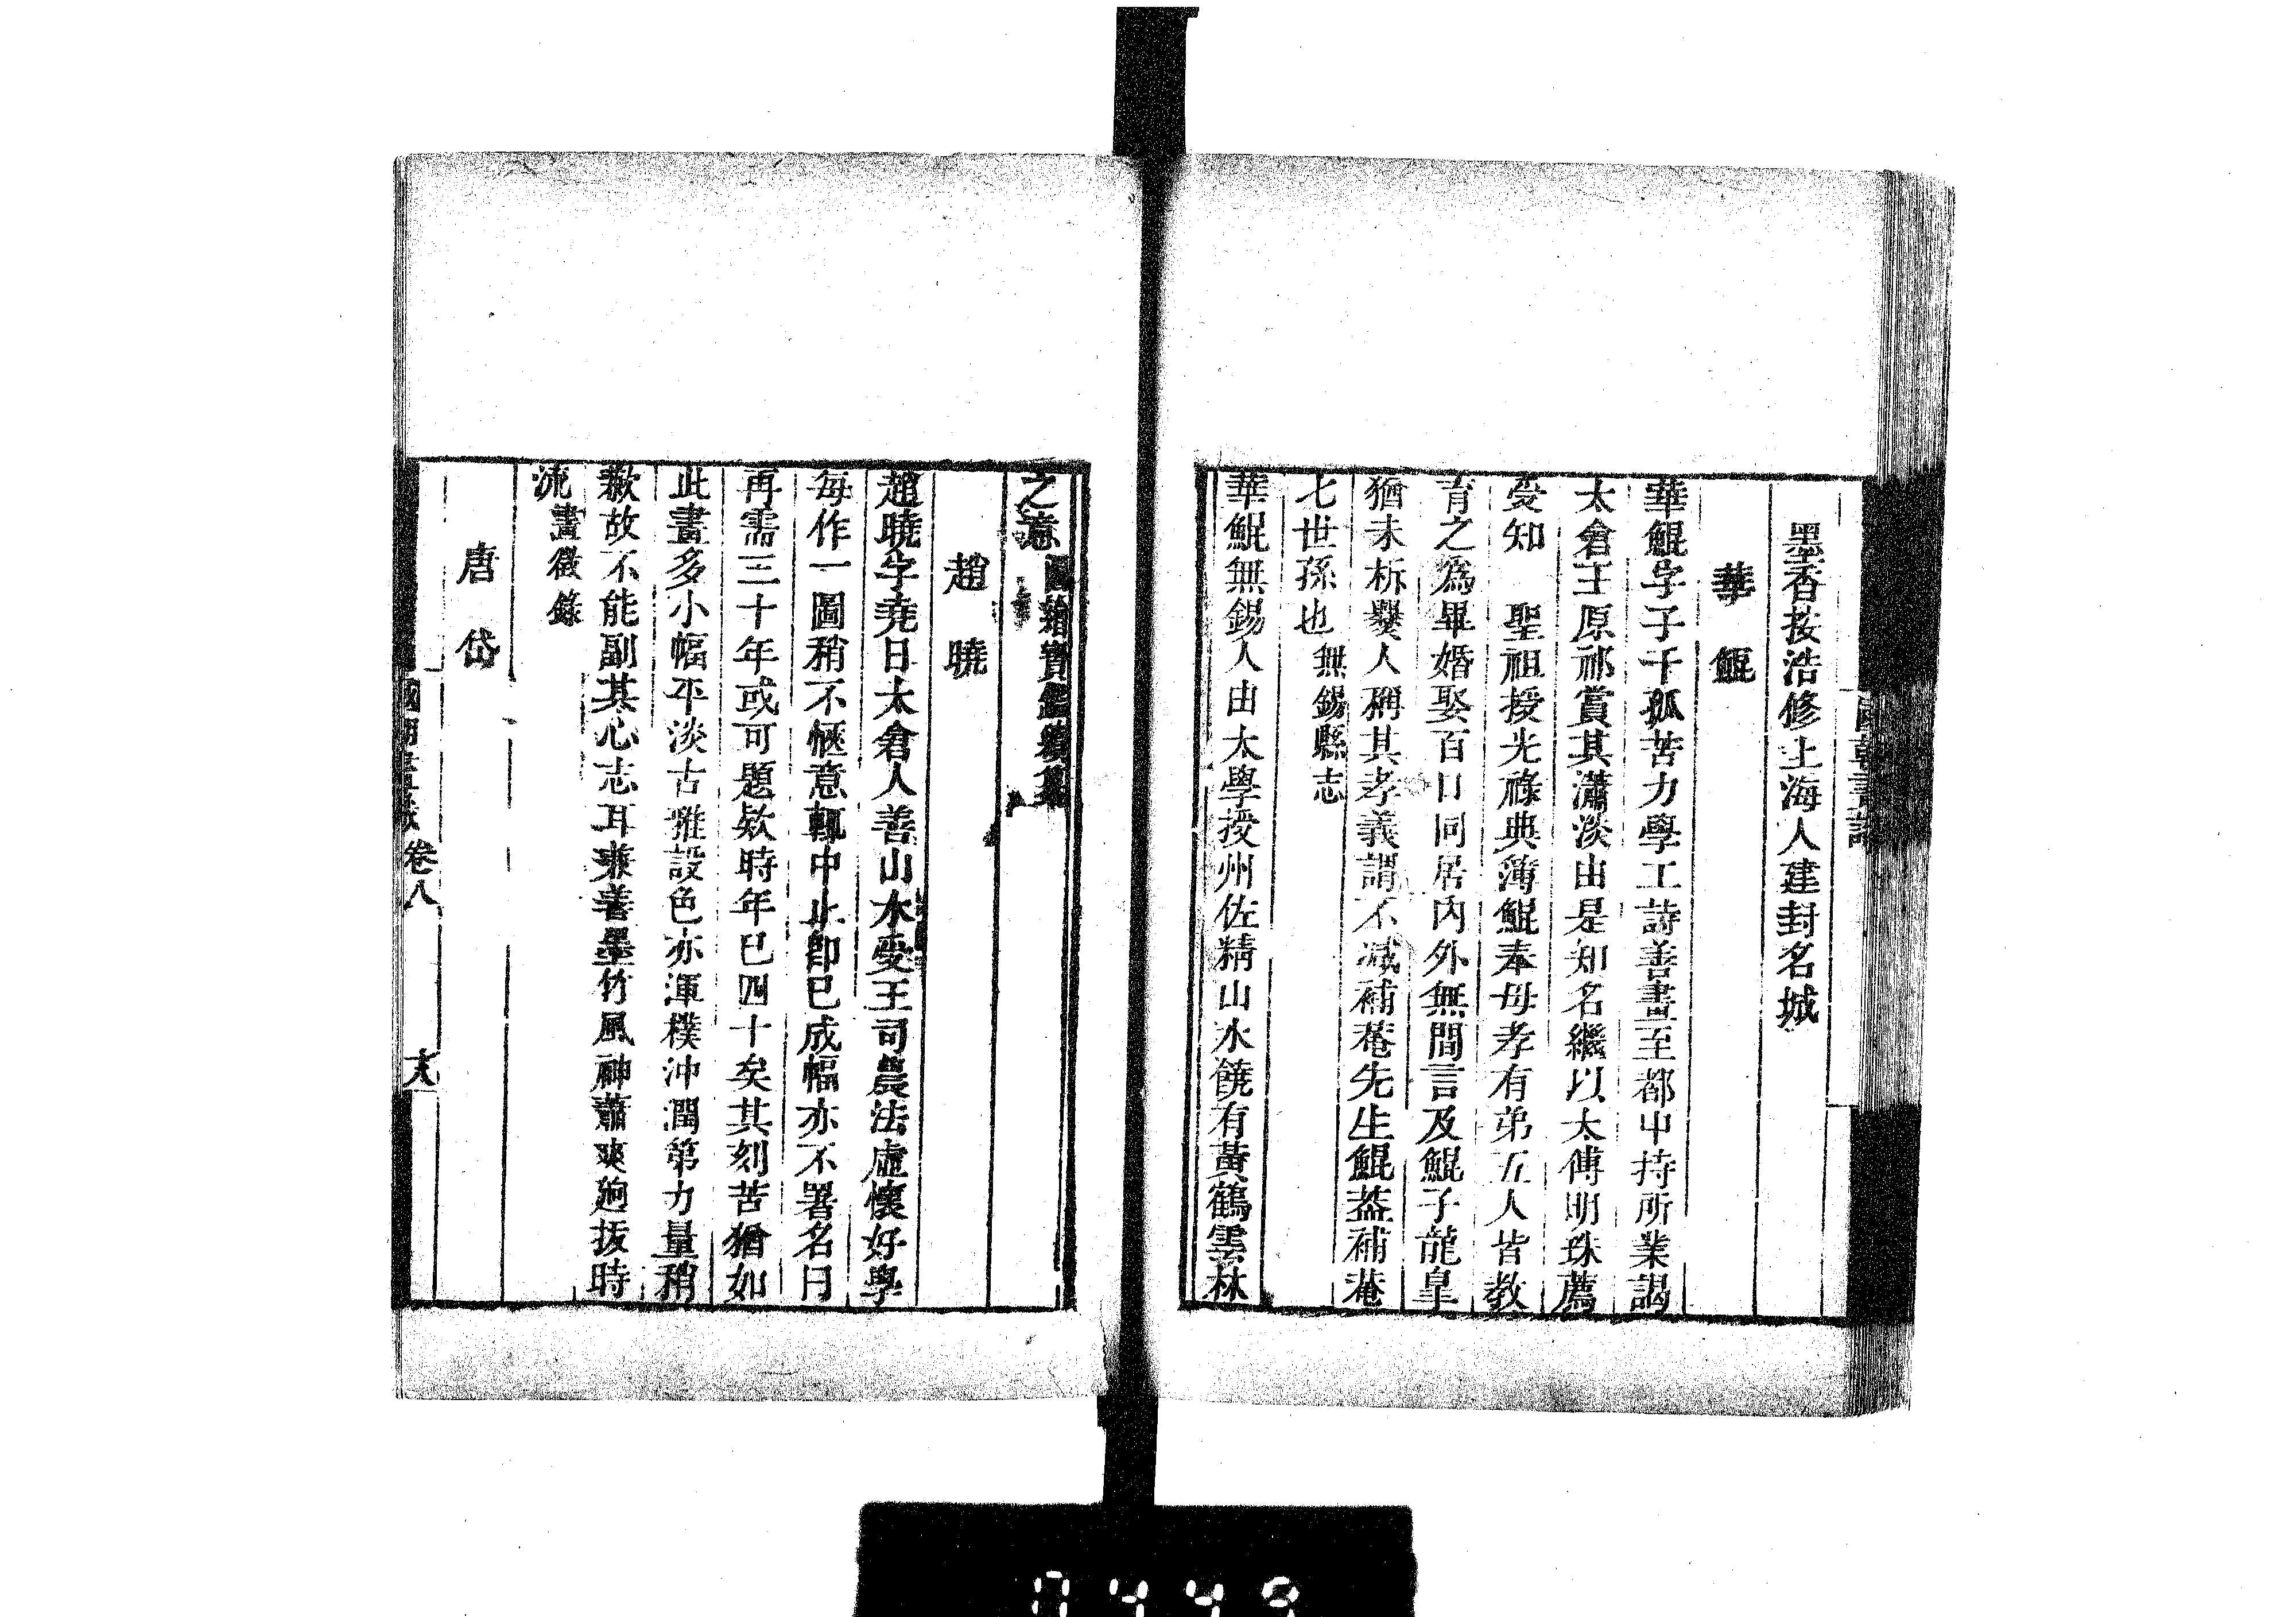 墨香按浩修上海人建封名城
華鯤
華鯤字子千孤苦力學工詩善畫至都中持所業謁
太倉王原祁賞其瀟淡由是知名繼以太傅明珠薦
受知　聖祖授光祿典簿鯤奉母孝有弟五人皆教
育之爲畢婚娶百口同居內外無間言及鯤子龍皇
猶未析爨人稱其孝義謂不減補菴先生鯤葢補菴
七世孫也無錫縣志
華鯤無錫人由太學授州佐精山水饒有黃鶴雲林
之意圖繪寶鑑續纂
趙曉
趙曉字堯日太倉人善山水受王司農法虛懷好學
每作一圖稍不愜意輒中止卽已成幅亦不署名曰
再需三十年或可題欵時年已四十矣其刻苦猶如
此畫多小幅平淡古雅設色亦渾樸沖潤第力量稍
歉故不能副其心志耳兼善墨竹風神蕭爽逈拔時
流畫徵錄
唐岱
卷八
十八
0449